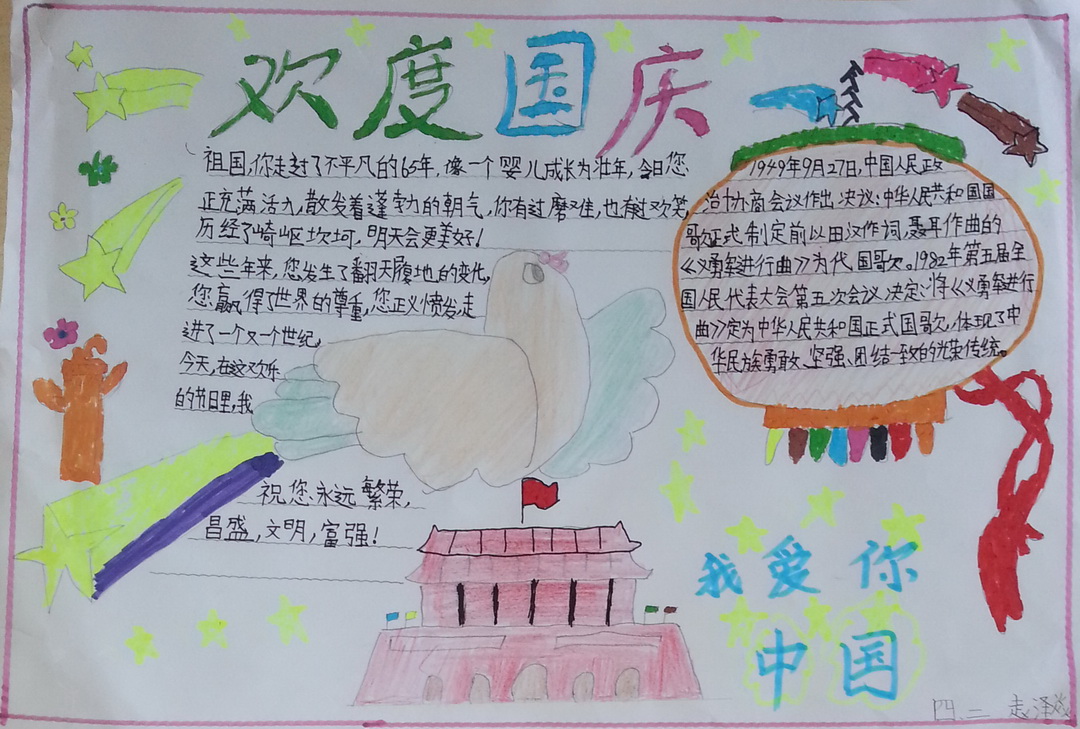 欢度国庆
祖国,你走过了不平凡的65年,像一个婴儿成长为壮年,今日您
正充满活力,散发着蓬勃的朝气,你有过磨难,也有过欢笑,
历经了崎岖坎坷,明天会更美好!
这些年来,您发生了翻天履地的变化,
您赢得了世界的尊重,您正义愤发,走
进了一个又一个世纪,
今天,在这欢乐
的节日里,我
祝您永远繁荣,
昌盛,文明,富强!
1949年9月27日,中国人民政
治协商会议作出决议:中华人民共和国国
歌正式制定前以田汉作词,聂耳作曲的
《义勇军进行曲》为代国歌。1982年第五届全
国人民代表大会第五次会议决定:将《义勇军进行
曲》定为中华人民共和国正式国歌,体现了中
华民族勇敢、坚强、团结一致的光荣传统。
我爱你
中国
四.二 赵泽